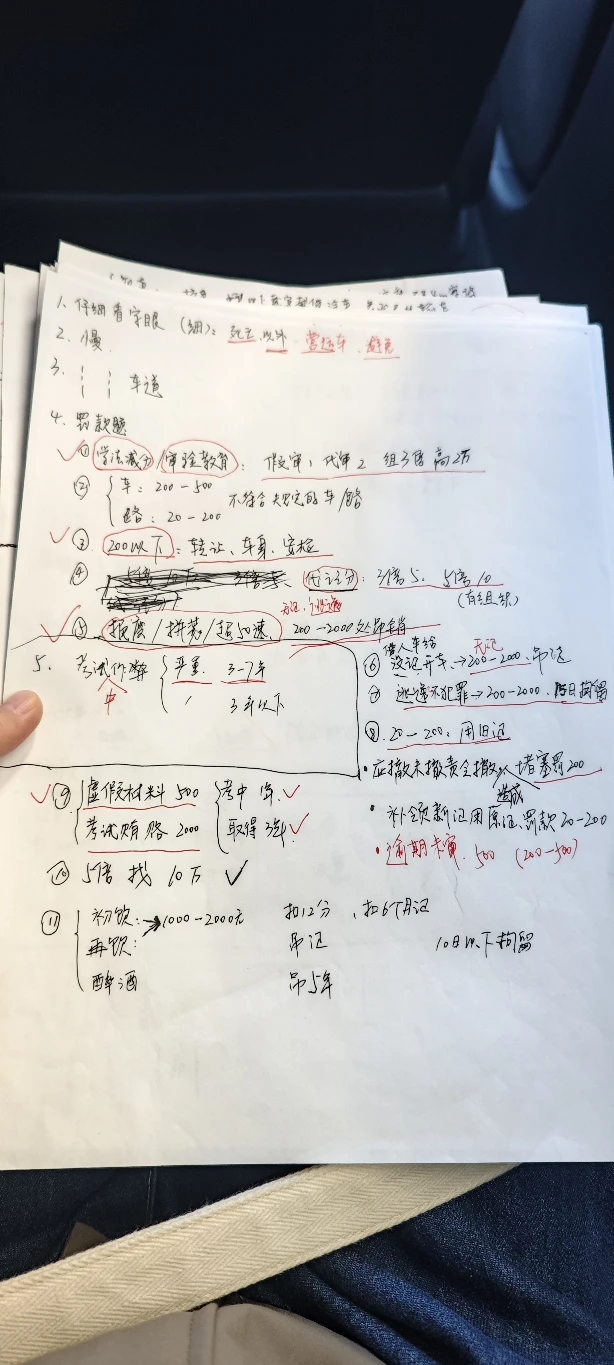 1. 仔细看字眼 (细): 死亡、以外 营运车、避免
2. 慢
3. 车道
4. 罚款题
① 学法减分/审验教育: 假审1 代审2 组3倍 高2万
② { 车: 200-500
路: 20-200
不符合规定的车/路
③ 200以下: 转让、车身、安检
④ 代记分: 3倍5、5倍10
(有组织)
⑤ 报废/拼装/超50速 200-2000处吊销
5. 考试作弊 { 严重 3-7年
中 / 3年以下
借人车给
⑥ 没证开车→200-2000、吊证
⑦ 逃逸不犯罪→200-2000、15日拘留
⑧ 20-200、用旧证
• 应撤未撤责令撤 造成 堵塞罚200
• 补领新证用原证罚款20-200
• 逾期未审、500 (200-500)
⑨ { 虚假材料 500 { 考中 1年
考试贿赂 2000 取得 3年
⑩ 5倍 找 10万
⑪ { 初饮: →1000-2000元 扣12分、扣6个月证
再饮: 吊证 10日以下拘留
醉酒 吊5年